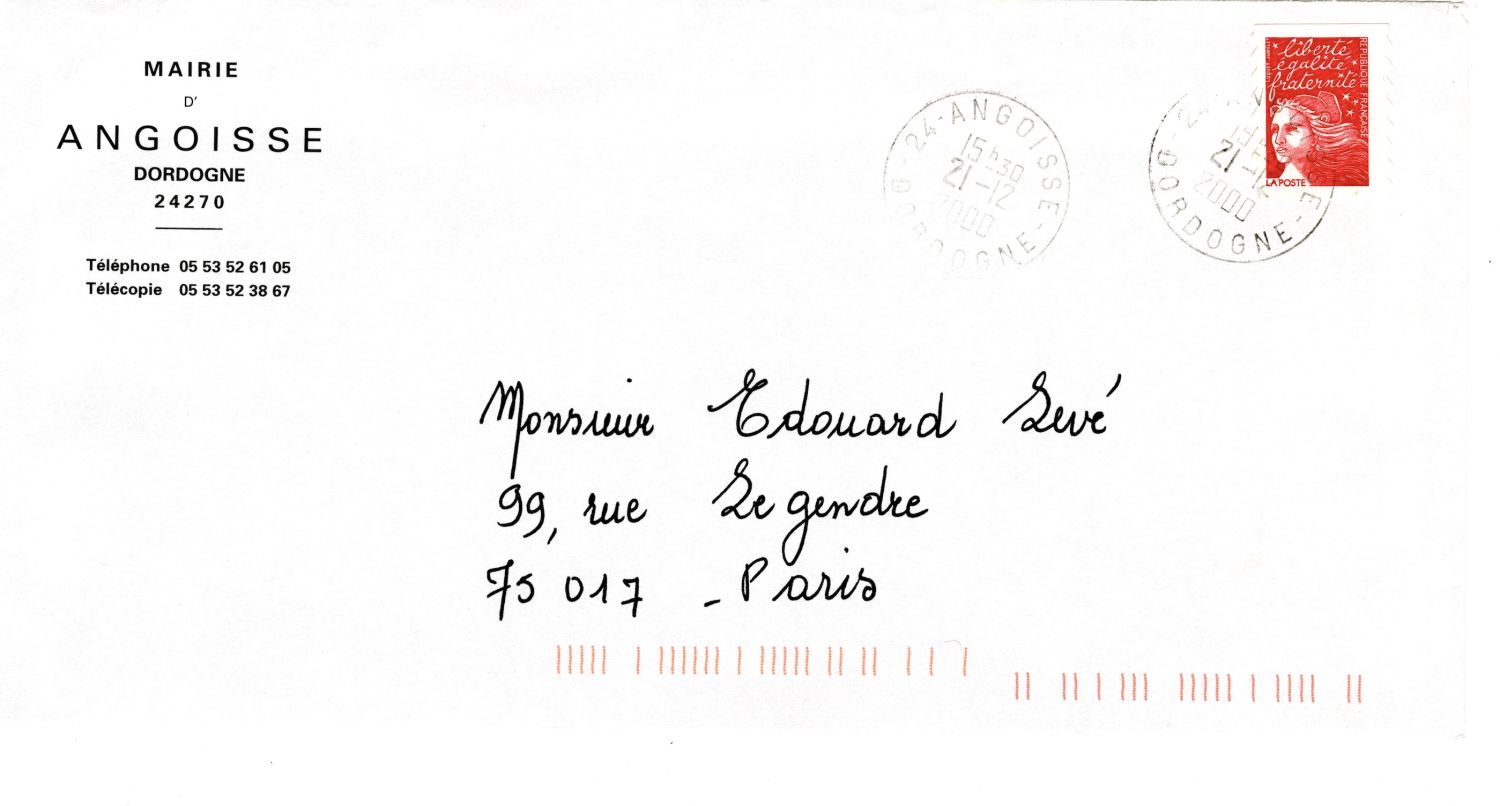 MAIRIE
D'
ANGOISSE
DORDOGNE
24270
Téléphone 05 53 52 61 05
Télécopie 05 53 52 38 67
24-ANGOISSE
15h30
21-12
2000
DORDOGNE-
24
21-12
2000
DORDOGNE-
liberté
égalité
fraternité
RÉPUBLIQUE FRANÇAISE
LA POSTE
Monsieur Edouard Levé
99, rue Legendre
75 017 - Paris